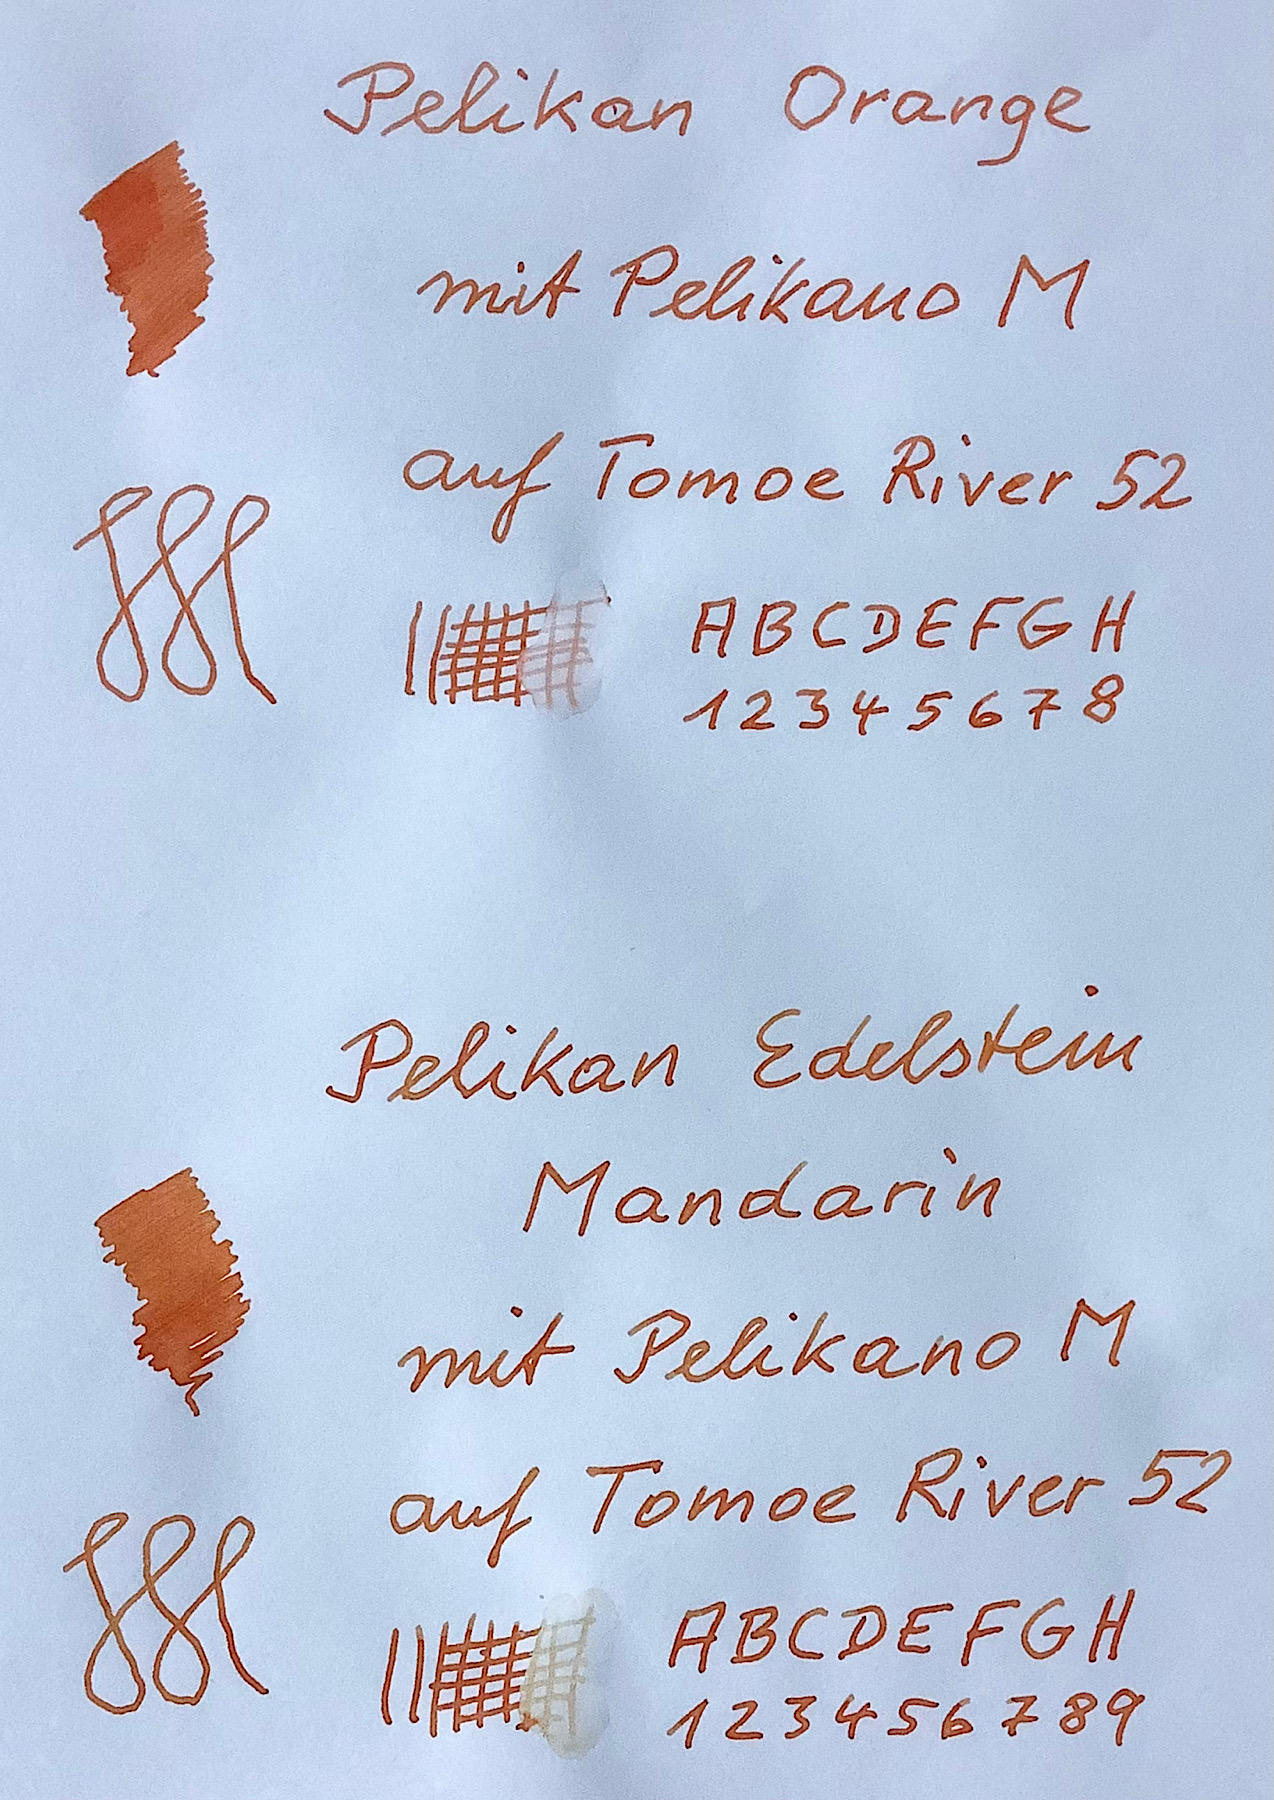 Pelikan Orange
mit Pelikano M
auf Tomoe River 52
ABCDEFGH
12345678
Pelikan Edelstein
Mandarin
mit Pelikano M
auf Tomoe River 52
ABCDEFGH
123456789